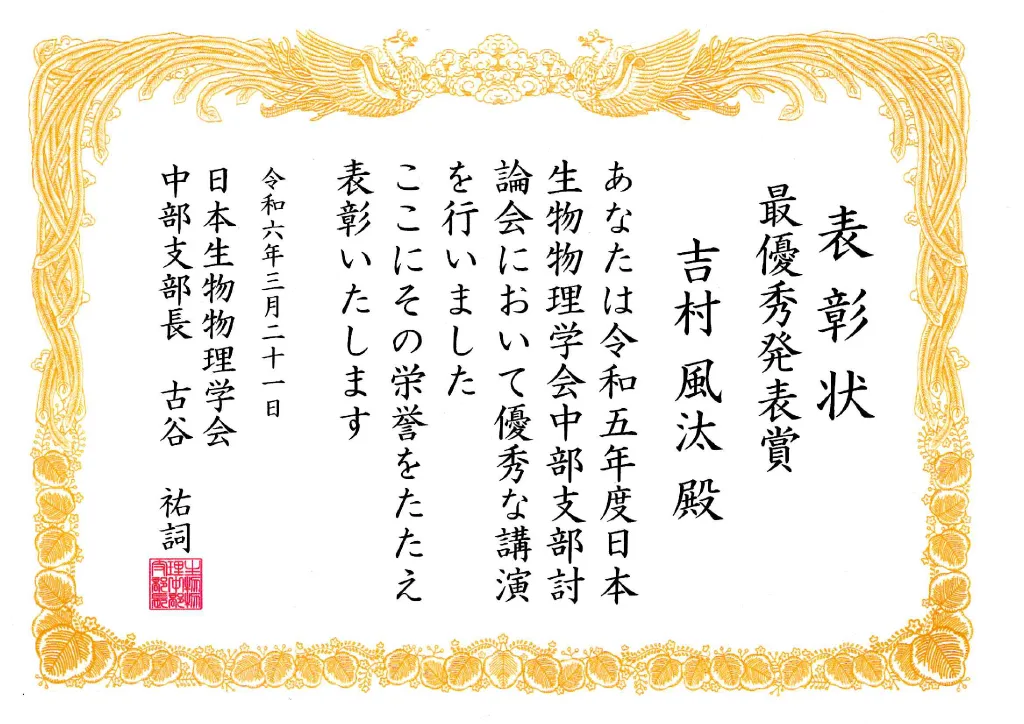 表彰状
最優秀発表賞
吉村 風汰 殿
あなたは令和五年度日本
生物物理学会中部支部討
論会において優秀な講演
を行いました
ここにその栄誉をたたえ
表彰いたします
令和六年三月二十一日
日本生物物理学会
中部支部長 古谷 祐詞